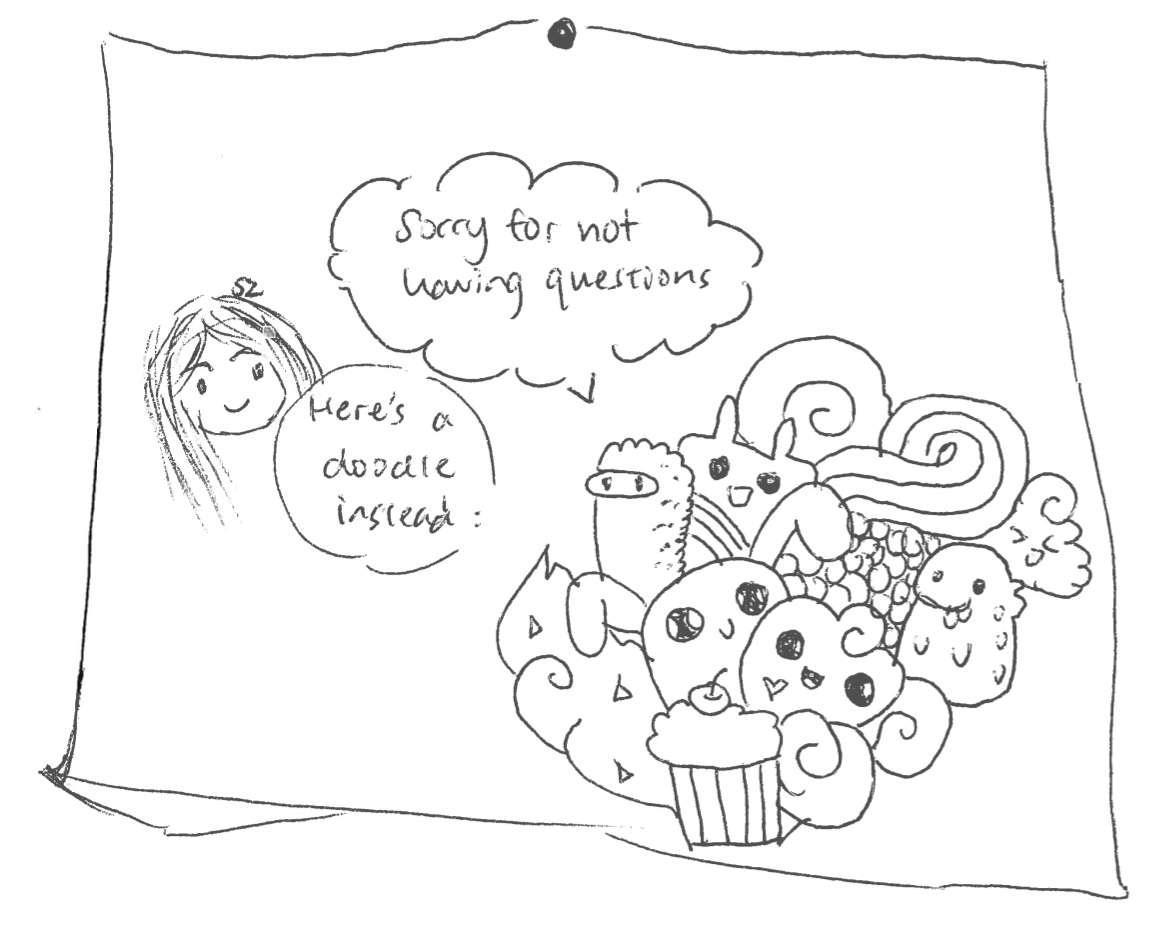 Sorry for not
having questions
Here's a
doodle
instead: